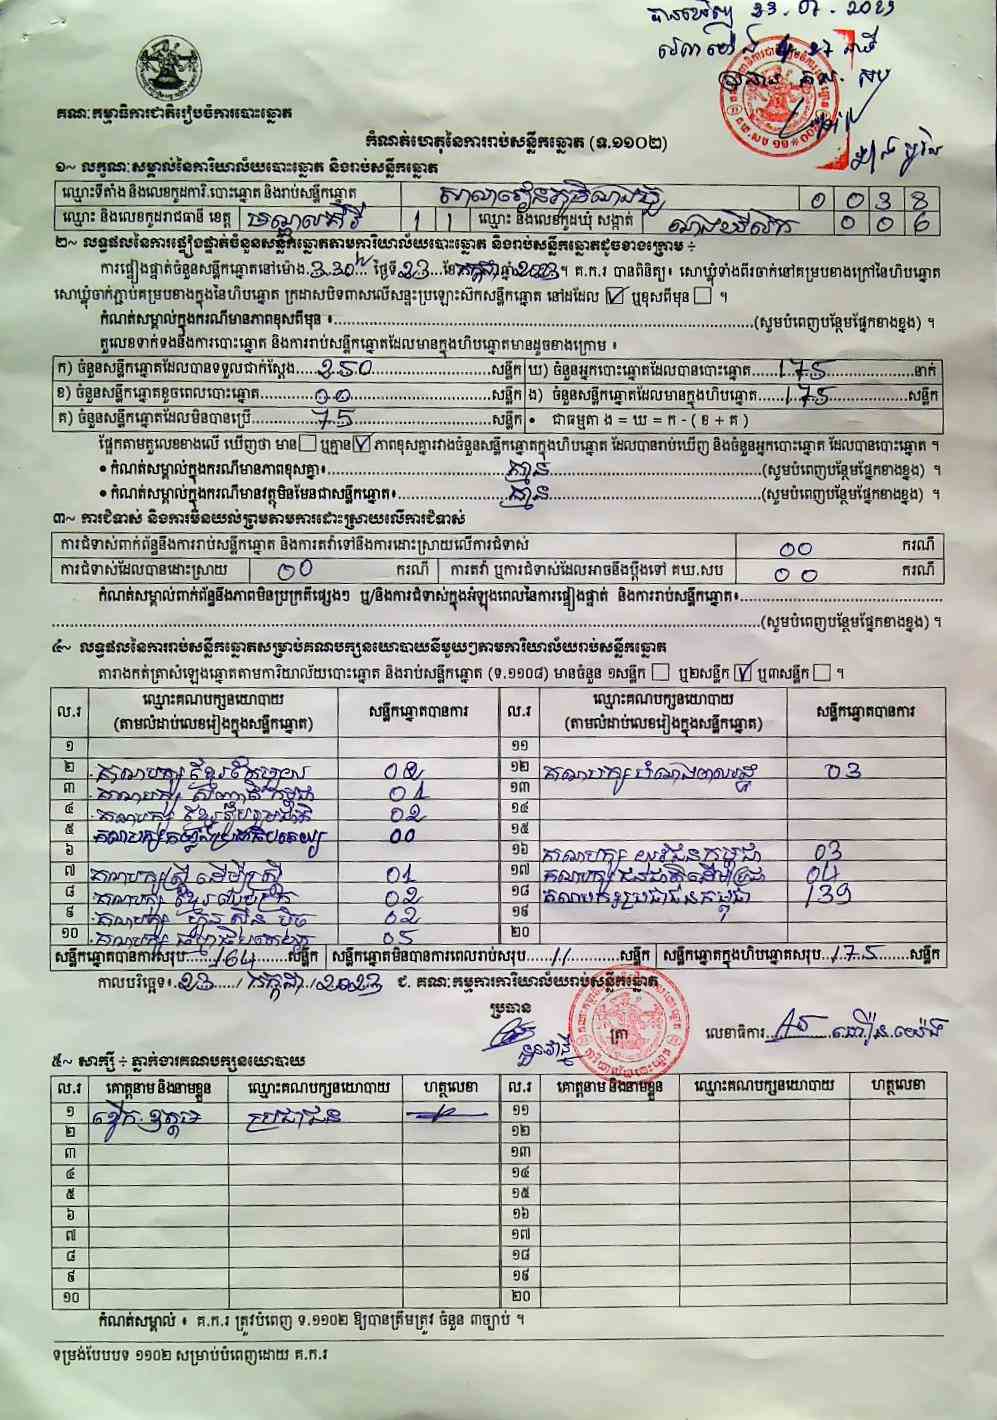 បានឃើញ 23.07.2023
គណៈកម្មាធិការជាតិរៀបចំការបោះឆ្នោត
កំណត់ហេតុនៃការរាប់សន្លឹកឆ្នោត (ទ.១១០២)
១~ លក្ខណៈសម្គាល់នៃការិយាល័យបោះឆ្នោត និងរាប់សន្លឹកឆ្នោត
ឈ្មោះទីតាំង និងលេខកូដការិ.បោះឆ្នោត និងរាប់សន្លឹកឆ្នោត សាលារៀនភូមិ 0 0 3 8
ឈ្មោះ និងលេខកូដរាជធានី ខេត្ត មណ្ឌលគីរី 1 1 ឈ្មោះ និងលេខកូដឃុំ សង្កាត់ 0 0 6
២~ លទ្ធផលនៃការផ្ទៀងផ្ទាត់ចំនួនសន្លឹកឆ្នោតតាមការិយាល័យបោះឆ្នោត និងរាប់សន្លឹកឆ្នោតដូចខាងក្រោម ÷
ការផ្ទៀងផ្ទាត់ចំនួនសន្លឹកឆ្នោតនៅម៉ោង 3.30 ថ្ងៃទី 23 ខែ កក្កដា ឆ្នាំ 2023 ។ គ.ក.រ បានពិនិត្យ៖ សោឃ្លុំទាំងពីរចាក់នៅគម្របខាងក្រៅនៃហិបឆ្នោត
សោឃ្លុំចាក់ភ្ជាប់គម្របខាងក្នុងនៃហិបឆ្នោត ក្រដាសបិទពាសលើសន្ទះប្រឡោះស៊កសន្លឹកឆ្នោត នៅដដែល ☑ ឬខុសពីមុន ☐ ។
កំណត់សម្គាល់ក្នុងករណីមានភាពខុសពីមុន ៖ (សូមបំពេញបន្ថែមផ្នែកខាងខ្នង) ។
តួលេខទាក់ទងនឹងការបោះឆ្នោត និងការរាប់សន្លឹកឆ្នោតដែលមានក្នុងហិបឆ្នោតមានដូចខាងក្រោម ៖
ក) ចំនួនសន្លឹកឆ្នោតដែលបានទទួលជាក់ស្តែង 250 សន្លឹក ឃ) ចំនួនអ្នកបោះឆ្នោតដែលបានបោះឆ្នោត 175 នាក់
ខ) ចំនួនសន្លឹកឆ្នោតខូចពេលបោះឆ្នោត 00 សន្លឹក ង) ចំនួនសន្លឹកឆ្នោតដែលមានក្នុងហិបឆ្នោត 175 សន្លឹក
គ) ចំនួនសន្លឹកឆ្នោតដែលមិនបានប្រើ 75 សន្លឹក • ជាធម្មតា ង = ឃ = ក - ( ខ + គ )
ផ្អែកតាមតួលេខខាងលើ ឃើញថា មាន ☐ ឬគ្មាន ☑ ភាពខុសគ្នារវាងចំនួនសន្លឹកឆ្នោតក្នុងហិបឆ្នោត ដែលបានរាប់ឃើញ និងចំនួនអ្នកបោះឆ្នោត ដែលបានបោះឆ្នោត ។
• កំណត់សម្គាល់ក្នុងករណីមានភាពខុសគ្នា៖ គ្មាន (សូមបំពេញបន្ថែមផ្នែកខាងខ្នង) ។
• កំណត់សម្គាល់ក្នុងករណីមានវត្ថុមិនមែនជាសន្លឹកឆ្នោត៖ គ្មាន (សូមបំពេញបន្ថែមផ្នែកខាងខ្នង) ។
៣~ ការជំទាស់ និងការមិនយល់ព្រមតាមការដោះស្រាយលើការជំទាស់
ការជំទាស់ពាក់ព័ន្ធនឹងការរាប់សន្លឹកឆ្នោត និងការតវ៉ាទៅនឹងការដោះស្រាយលើការជំទាស់ 00 ករណី
ការជំទាស់ដែលបានដោះស្រាយ 00 ករណី ការតវ៉ា ឬការជំទាស់ដែលអាចនឹងប្តឹងទៅ គឃ.សប 00 ករណី
កំណត់សម្គាល់ពាក់ព័ន្ធនឹងភាពមិនប្រក្រតីផ្សេងៗ ឬ/និងការជំទាស់ក្នុងអំឡុងពេលនៃការផ្ទៀងផ្ទាត់ និងការរាប់សន្លឹកឆ្នោត៖
(សូមបំពេញបន្ថែមផ្នែកខាងខ្នង) ។
៤~ លទ្ធផលនៃការរាប់សន្លឹកឆ្នោតសម្រាប់គណបក្សនយោបាយនីមួយៗតាមការិយាល័យរាប់សន្លឹកឆ្នោត
តារាងកត់ត្រាសំឡេងឆ្នោតតាមការិយាល័យបោះឆ្នោត និងរាប់សន្លឹកឆ្នោត (ទ.១១០៨) មានចំនួន ១សន្លឹក ☐ ឬ២សន្លឹក ☑ ឬ៣សន្លឹក ☐ ។
ល.រ ឈ្មោះគណបក្សនយោបាយ (តាមលំដាប់លេខរៀងក្នុងសន្លឹកឆ្នោត) សន្លឹកឆ្នោតបានការ ល.រ ឈ្មោះគណបក្សនយោបាយ (តាមលំដាប់លេខរៀងក្នុងសន្លឹកឆ្នោត) សន្លឹកឆ្នោតបានការ
១ ១១
២ គណបក្ស ខ្មែរ 02 ១២ គណបក្ស 03
៣ គណបក្ស សញ្ជាតិកម្ពុជា 01 ១៣
៤ គណបក្ស ខ្មែររួបរួមជាតិ 02 ១៤
៥ គណបក្ស 00 ១៥
៦ ១៦ គណបក្ស យុវជនកម្ពុជា 03
៧ គណបក្សស្ត្រីដើម្បីស្ត្រី 01 ១៧ គណបក្ស 04
៨ គណបក្ស ខ្មែរ 02 ១៨ គណបក្សប្រជាជនកម្ពុជា 139
៩ គណបក្ស ហ៊្វុនស៊ិនប៉ិច 02 ១៩
១០ គណបក្ស 05 ២០
សន្លឹកឆ្នោតបានការសរុប 164 សន្លឹក សន្លឹកឆ្នោតមិនបានការពេលរាប់សរុប 11 សន្លឹក សន្លឹកឆ្នោតក្នុងហិបឆ្នោតសរុប 175 សន្លឹក
កាលបរិច្ឆេទ៖ 23 / កក្កដា / 2023 ជ. គណៈកម្មការការិយាល័យរាប់សន្លឹកឆ្នោត
ប្រធាន
ត្រា លេខាធិការ
៥~ សាក្សី ÷ ភ្នាក់ងារគណបក្សនយោបាយ
ល.រ គោត្តនាម និងនាមខ្លួន ឈ្មោះគណបក្សនយោបាយ ហត្ថលេខា ល.រ គោត្តនាម និងនាមខ្លួន ឈ្មោះគណបក្សនយោបាយ ហត្ថលេខា
១ ប្រជាជន ១១
២ ១២
៣ ១៣
៤ ១៤
៥ ១៥
៦ ១៦
៧ ១៧
៨ ១៨
៩ ១៩
១០ ២០
កំណត់សម្គាល់ ៖ គ.ក.រ ត្រូវបំពេញ ទ.១១០២ ឱ្យបានត្រឹមត្រូវ ចំនួន ៣ច្បាប់ ។
ទម្រង់បែបបទ ១១០២ សម្រាប់បំពេញដោយ គ.ក.រ